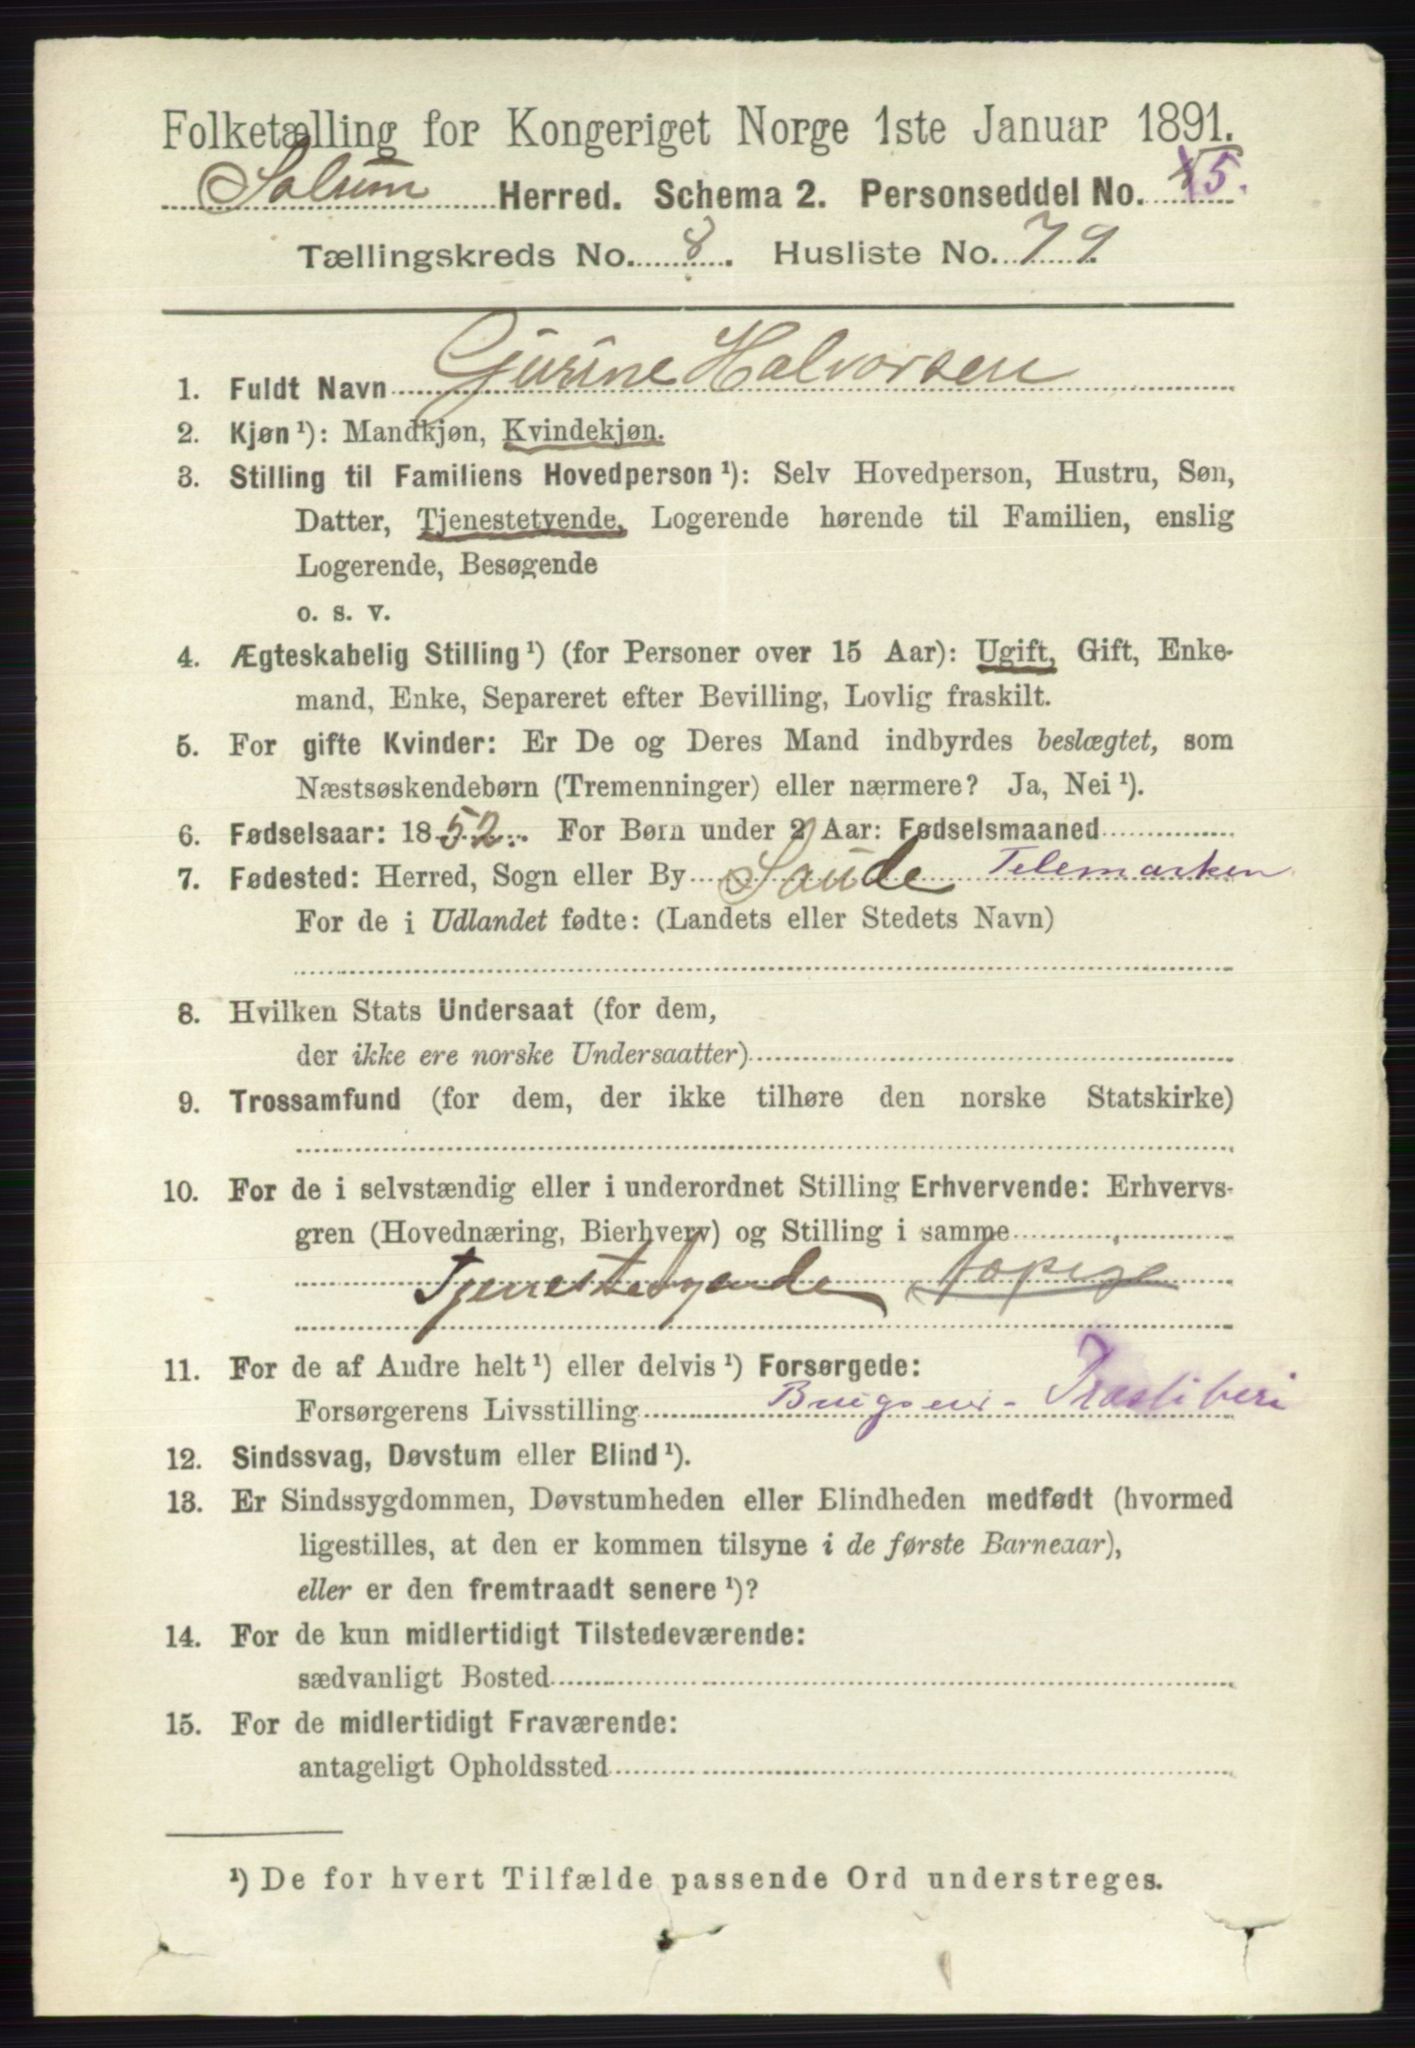 Folketælling for Kongeriget Norge 1ste Januar 1891.
Solum Herred. Schema 2. Personseddel No. 5.
Tællingskreds No. 8. Husliste No. 79.
1. Fuldt Navn Gurine Halvorsen
2. Kjøn¹): Mandkjøn, Kvindekjøn.
3. Stilling til Familiens Hovedperson¹): Selv Hovedperson, Hustru, Søn,
Datter, Tjenestetyende, Logerende hørende til Familien, enslig
Logerende, Besøgende
o. s. v.
4. Ægteskabelig Stilling¹) (for Personer over 15 Aar): Ugift, Gift, Enke-
mand, Enke, Separeret efter Bevilling, Lovlig fraskilt.
5. For gifte Kvinder: Er De og Deres Mand indbyrdes beslægtet, som
Næstsøskendebørn (Tremenninger) eller nærmere? Ja, Nei¹).
6. Fødselsaar: 1852. For Børn under 2 Aar: Fødselsmaaned
7. Fødested: Herred, Sogn eller By Saude Telemarken
For de i Udlandet fødte: (Landets eller Stedets Navn)
8. Hvilken Stats Undersaat (for dem,
der ikke ere norske Undersaatter)
9. Trossamfund (for dem, der ikke tilhøre den norske Statskirke)
10. For de i selvstændig eller i underordnet Stilling Erhvervende: Erhvervs-
gren (Hovednæring, Bierhverv) og Stilling i samme
Tjenestetyende
11. For de af Andre helt¹) eller delvis¹) Forsørgede:
Forsørgerens Livsstilling
12. Sindssvag, Døvstum eller Blind¹).
13. Er Sindssygdommen, Døvstumheden eller Blindheden medfødt (hvormed
ligestilles, at den er kommen tilsyne i de første Barneaar),
eller er den fremtraadt senere¹)?
14. For de kun midlertidigt Tilstedeværende:
sædvanligt Bosted
15. For de midlertidigt Fraværende:
antageligt Opholdssted
¹) De for hvert Tilfælde passende Ord understreges.